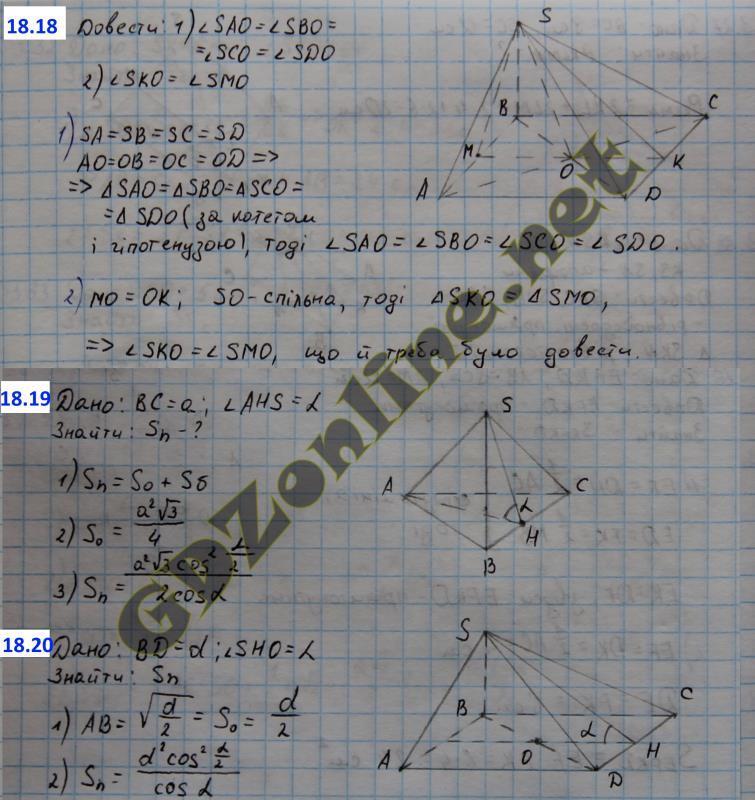 18.18 Довести: 1) ∠SAO = ∠SBO =
= ∠SCO = ∠SDO
2) ∠SKO = ∠SMO
1) SA = SB = SC = SD
AO = OB = OC = OD =>
=> ΔSAO = ΔSBO = ΔSCO =
= ΔSDO (за катетом
і гіпотенузою), тоді ∠SAO = ∠SBO = ∠SCO = ∠SDO.
2) MO = OK; SO - спільна, тоді ΔSKO = ΔSMO,
=> ∠SKO = ∠SMO, що й треба було довести.
S
B
C
M
O
K
A
D
18.19 Дано: BC = a; ∠AHS = α
Знайти: Sп - ?
1) Sп = So + Sб
2) So = a²√3 / 4
3) Sп = a²√3 cos² α/2 / 2 cos α
S
A
C
α
H
B
18.20 Дано: BD = d; ∠SHO = α
Знайти: Sп
1) AB = √(d/2) = So = d/2
2) Sп = d² cos² α/2 / cos α
S
B
C
α
O
H
A
D
GDZonline.net